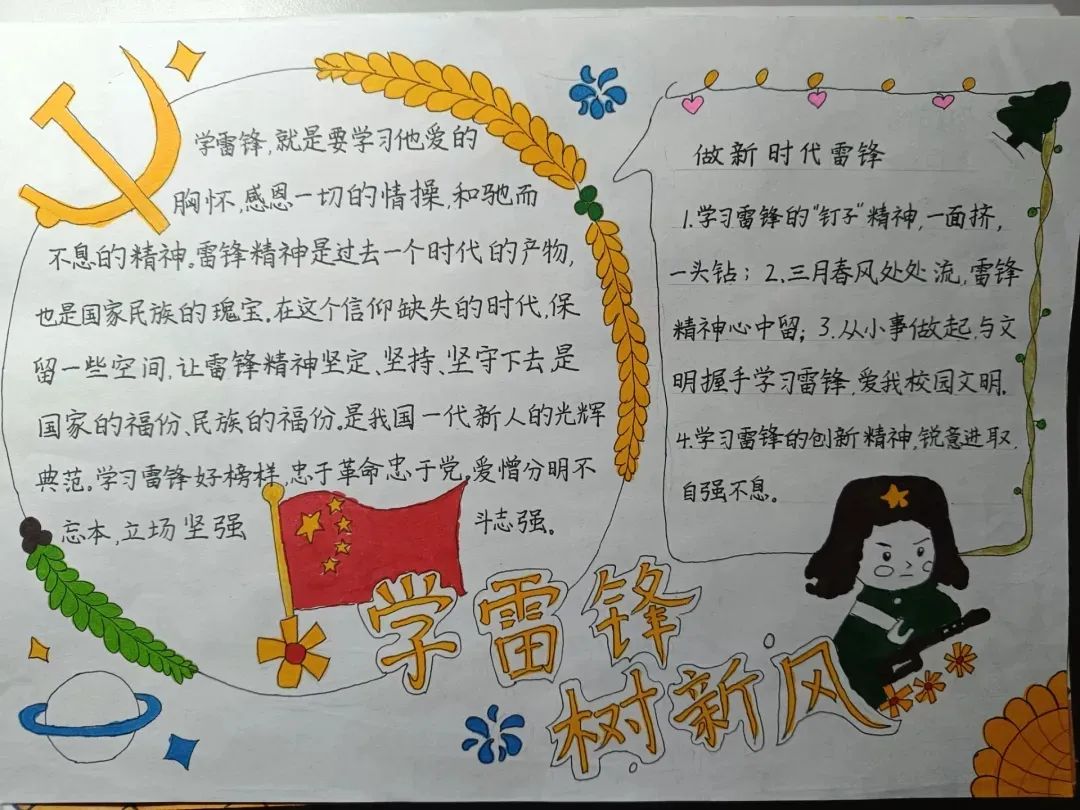 学雷锋,就是要学习他爱的
胸怀,感恩一切的情操,和驰而
不息的精神。雷锋精神是过去一个时代的产物,
也是国家民族的瑰宝。在这个信仰缺失的时代,保
留一些空间,让雷锋精神坚定、坚持、坚守下去,是
国家的福份、民族的福份,是我国一代新人的光辉
典范。学习雷锋好榜样,忠于革命忠于党。爱憎分明不
忘本,立场坚强
斗志强。
做新时代雷锋
1.学习雷锋的“钉子”精神,一面挤,
一头钻;2.三月春风处处流,雷锋
精神心中留;3.从小事做起,与文
明握手学习雷锋,爱我校园文明。
4.学习雷锋的创新精神,锐意进取,
自强不息。
学雷锋
树新风